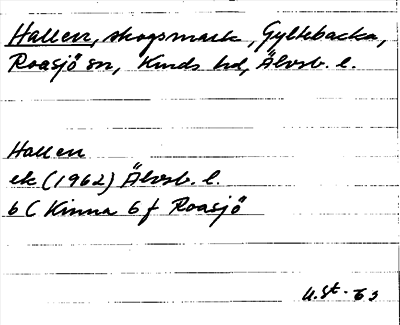 Hallen, skogsmark, Gyltebacka,
Roasjö sn, Kinds hd, Älvsb. l.
Hallen
ek (1962) Älvsb. l.
6 C Kinna 6 f Roasjö
U.St. 63